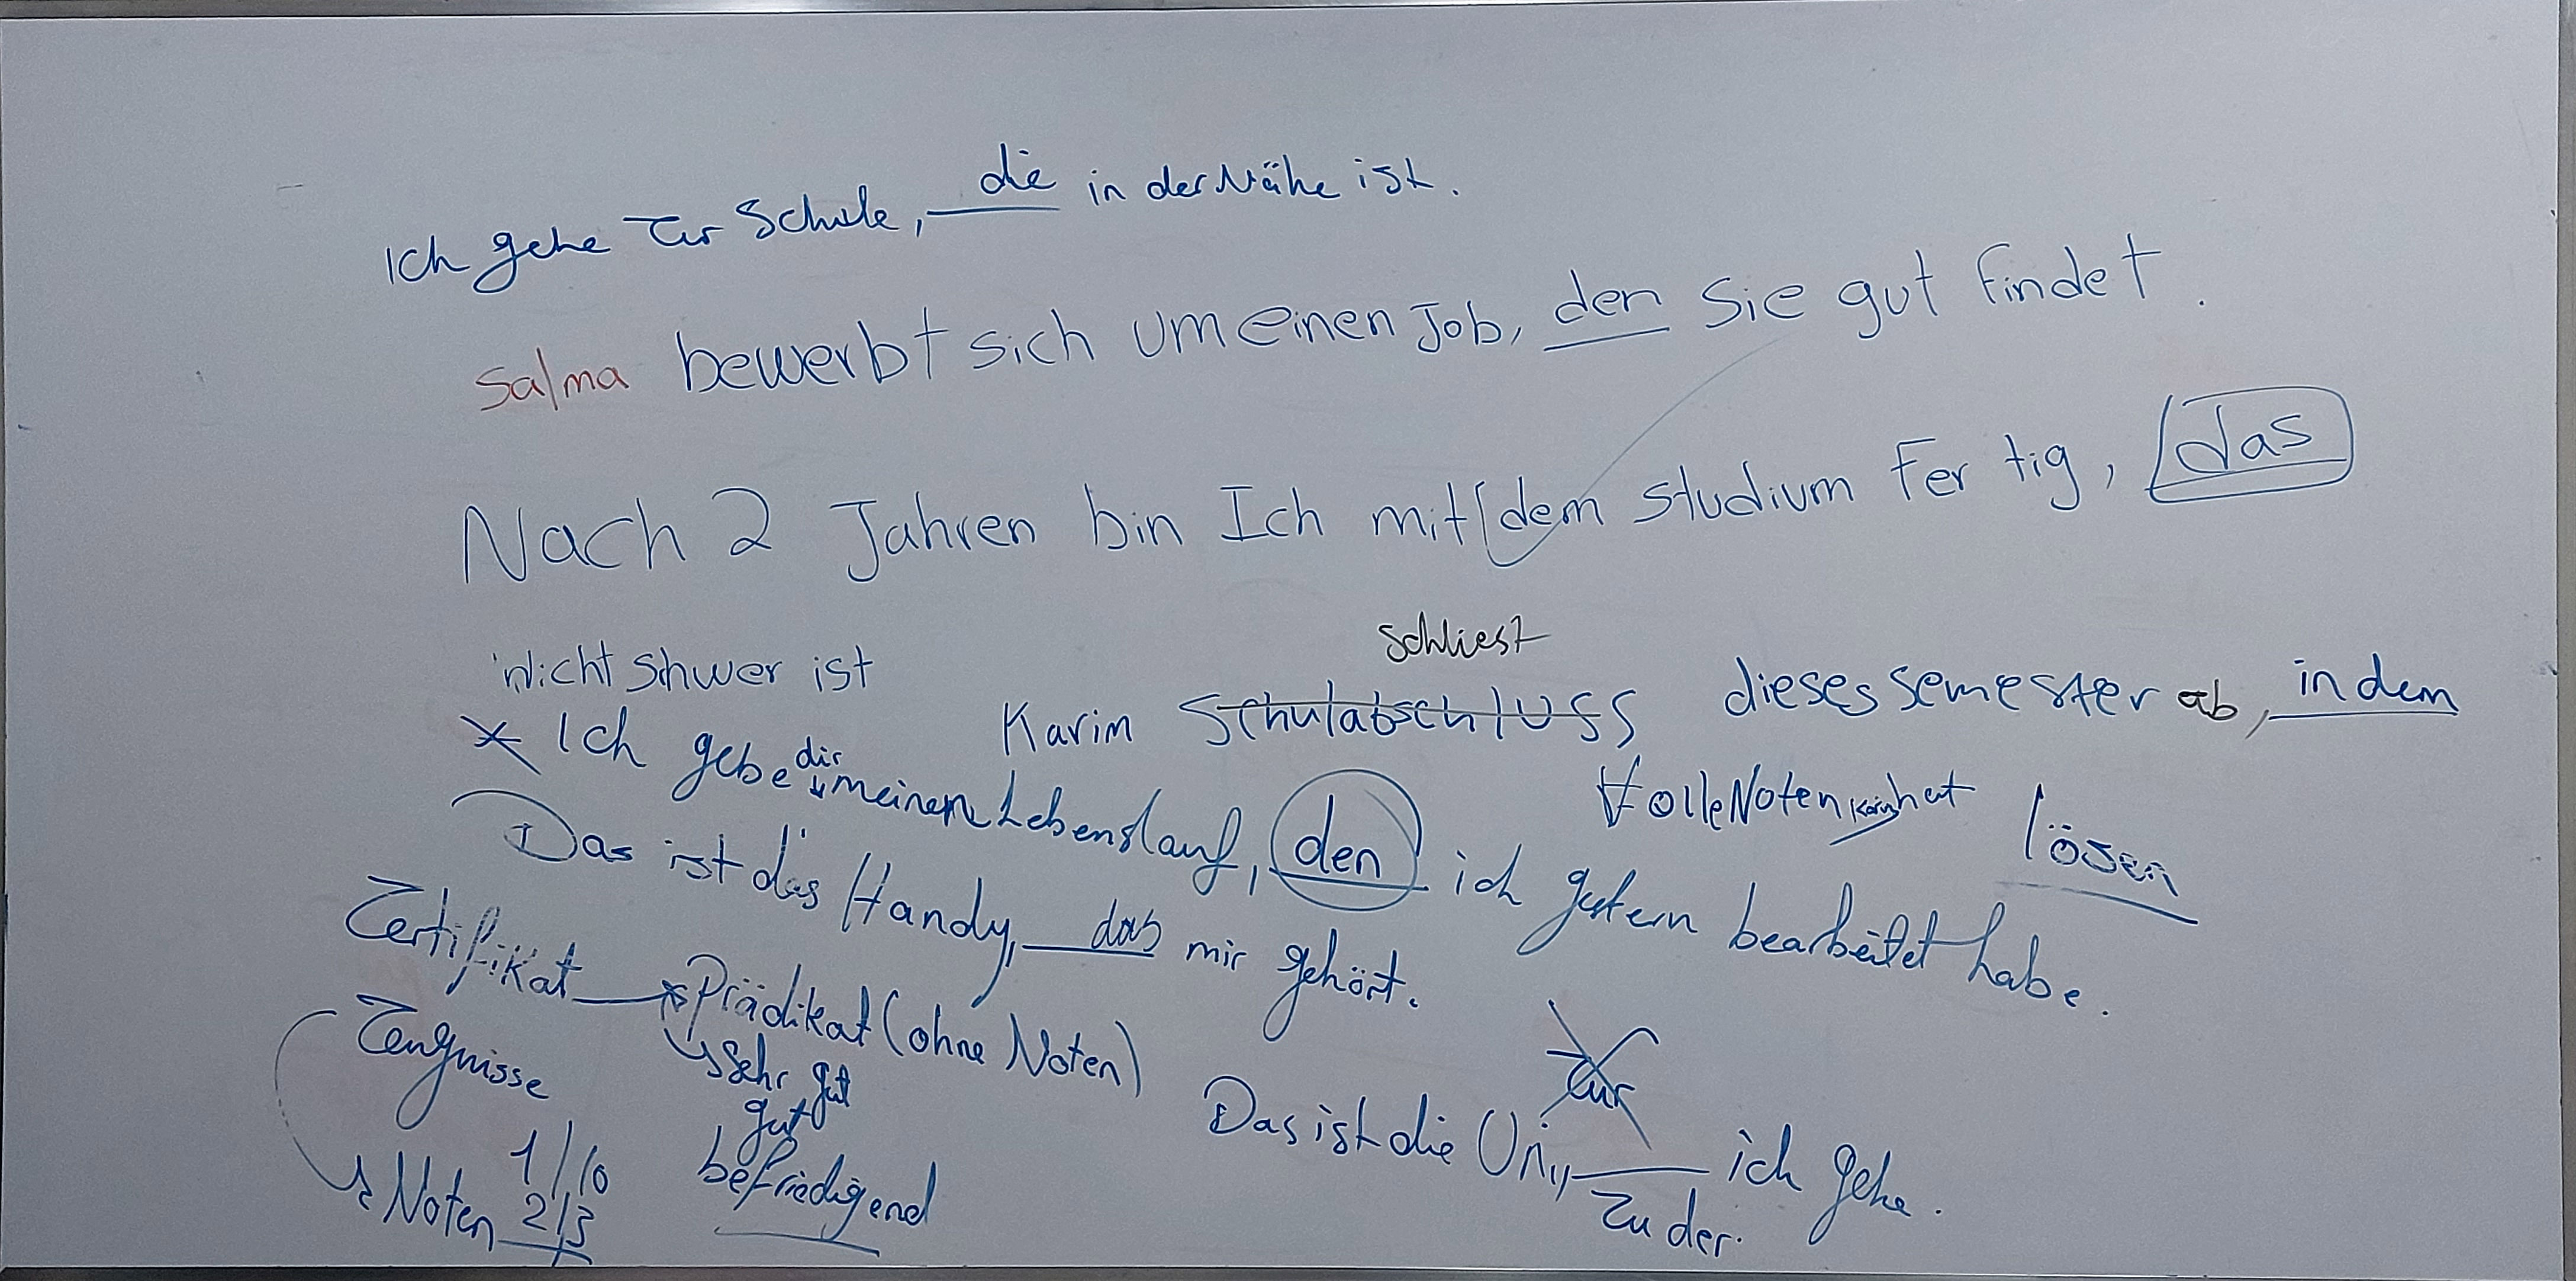 Ich gehe zur Schule, die in der Nähe ist.
Salma bewerbt sich um einen Job, den Sie gut findet.
Nach 2 Jahren bin Ich mit dem Studium Fertig, das
Nicht Shwer ist
schliest
Karim Schulabschluss dieses semester ab, in dem
Volle Noten hat
lösen
Ich gebe dir meinen Lebenslauf, den ich gestern bearbeitet habe.
Das ist das Handy, das mir gehört.
Zertifikat → Prädikat (ohne Noten)
sehr gut
gut
befriedigend
Zeugnisse
Noten 1/10
2/3
zur
Das ist die Uni, ich gehe.
zu der.